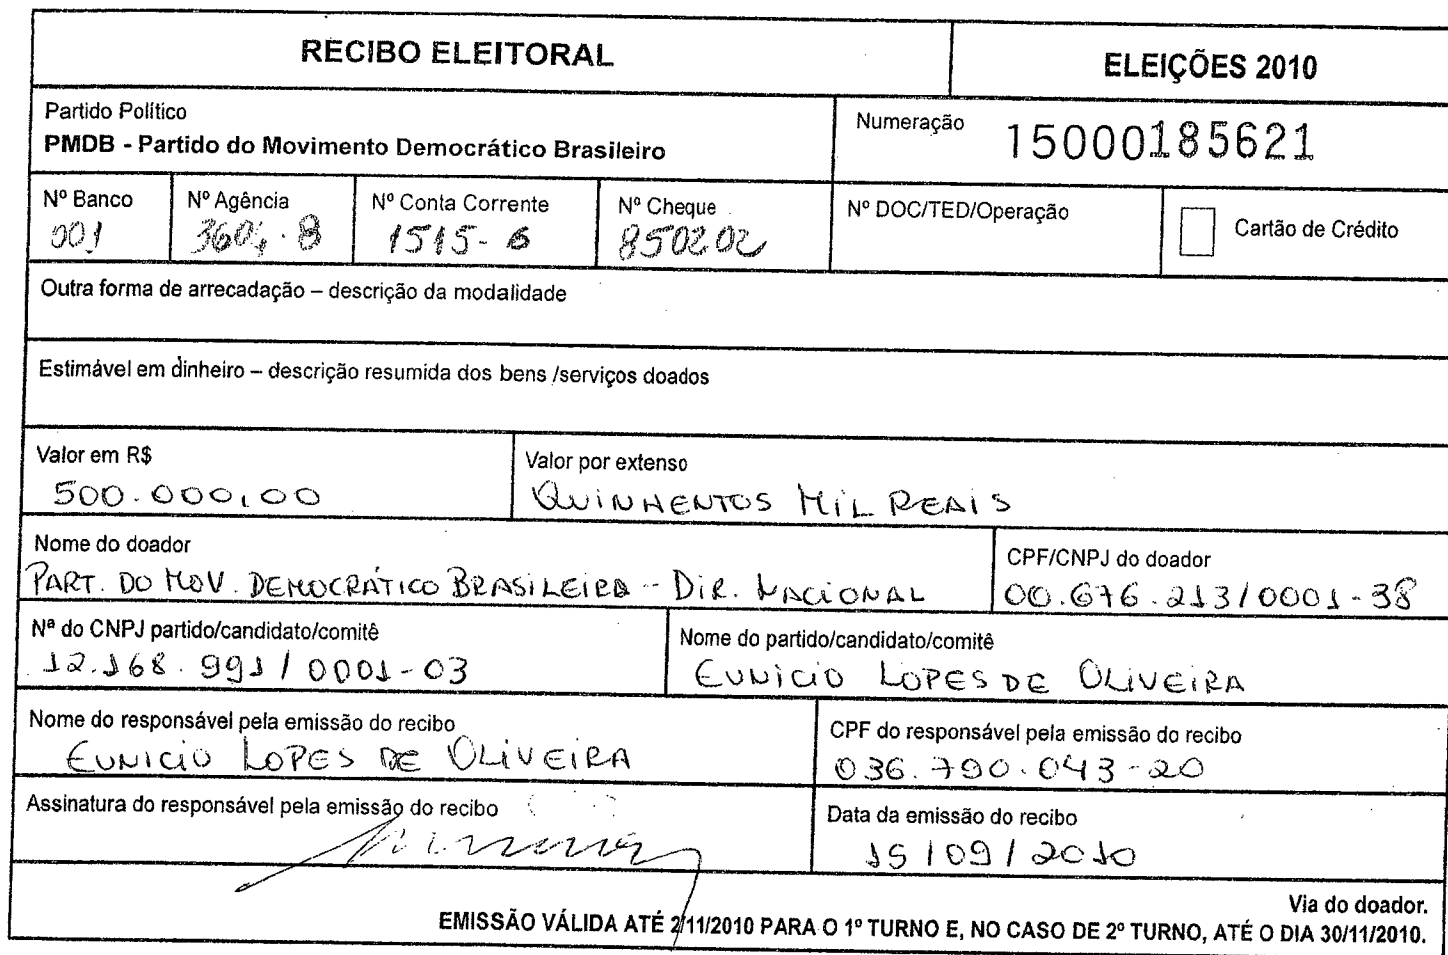 RECIBO ELEITORAL
ELEIÇÕES 2010
Partido Político
PMDB - Partido do Movimento Democrático Brasileiro
Numeração 15000185621
Nº Banco
001
Nº Agência
3604-8
Nº Conta Corrente
1515-6
Nº Cheque
850202
Nº DOC/TED/Operação
Cartão de Crédito
Outra forma de arrecadação – descrição da modalidade
Estimável em dinheiro – descrição resumida dos bens /serviços doados
Valor em R$
500.000,00
Valor por extenso
QUINHENTOS MIL REAIS
Nome do doador
PART. DO MOV. DEMOCRÁTICO BRASILEIRO - DIR. NACIONAL
CPF/CNPJ do doador
00.676.213/0001-38
Nª do CNPJ partido/candidato/comitê
12.168.991/0001-03
Nome do partido/candidato/comitê
EUNICIO LOPES DE OLIVEIRA
Nome do responsável pela emissão do recibo
EUNICIO LOPES DE OLIVEIRA
CPF do responsável pela emissão do recibo
036.790.043-20
Assinatura do responsável pela emissão do recibo
Data da emissão do recibo
15/09/2010
Via do doador.
EMISSÃO VÁLIDA ATÉ 2/11/2010 PARA O 1º TURNO E, NO CASO DE 2º TURNO, ATÉ O DIA 30/11/2010.